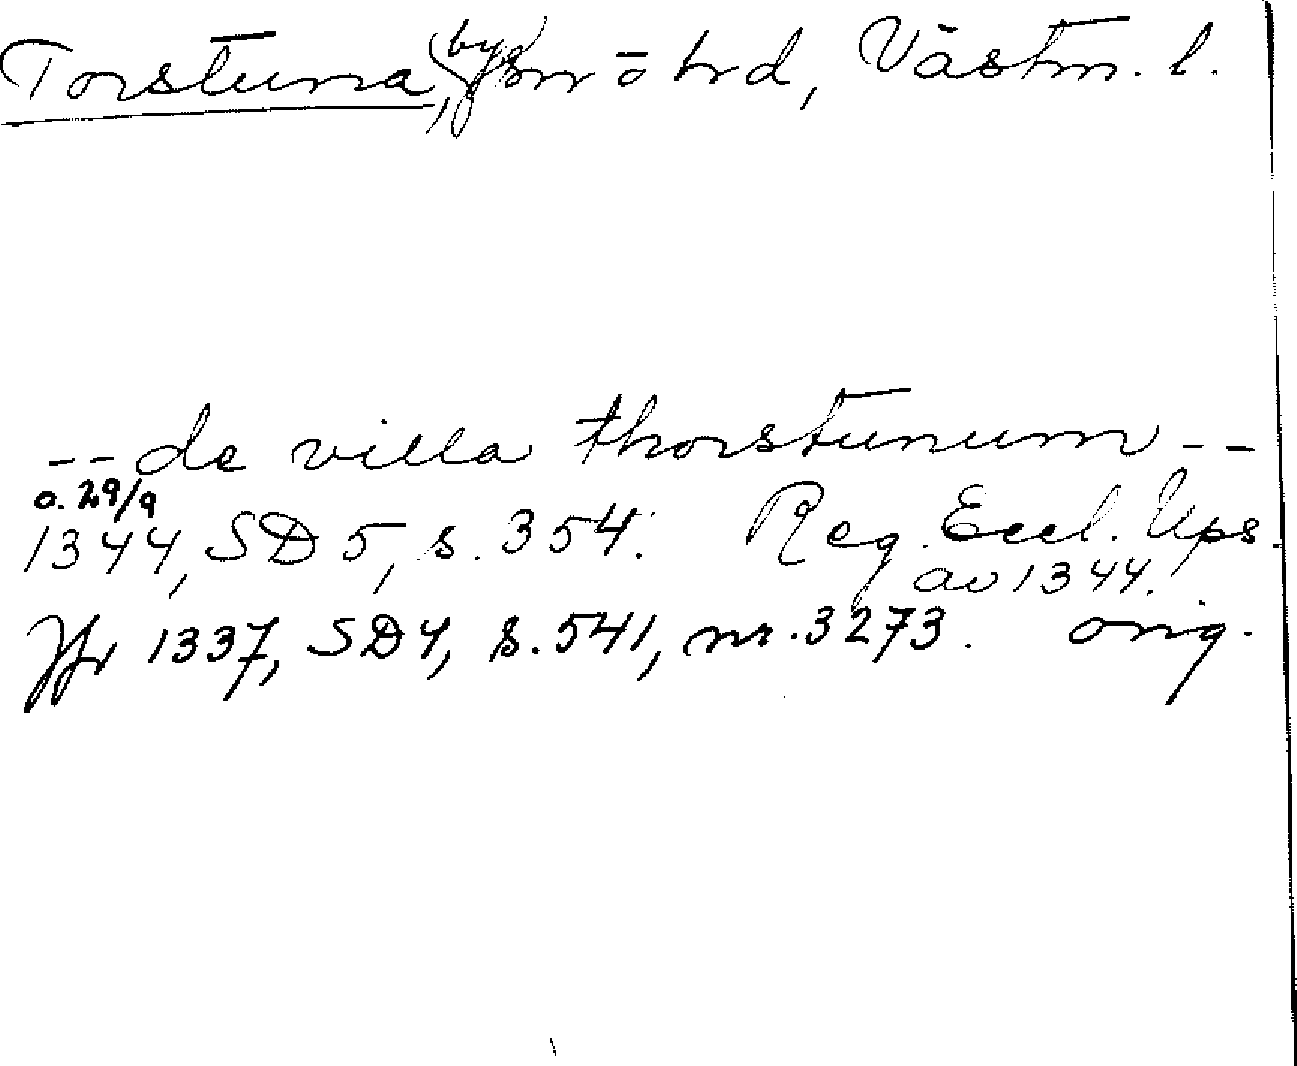 Torstuna, (by) sn o hrd, Västm. l.
-- de villa thorstunum --
o. 29/9
1344, SD 5, s. 354. Reg. Eccl. Ups.
av 1344.
Jfr 1337, SD 4, s. 541, nr. 3273. orig.